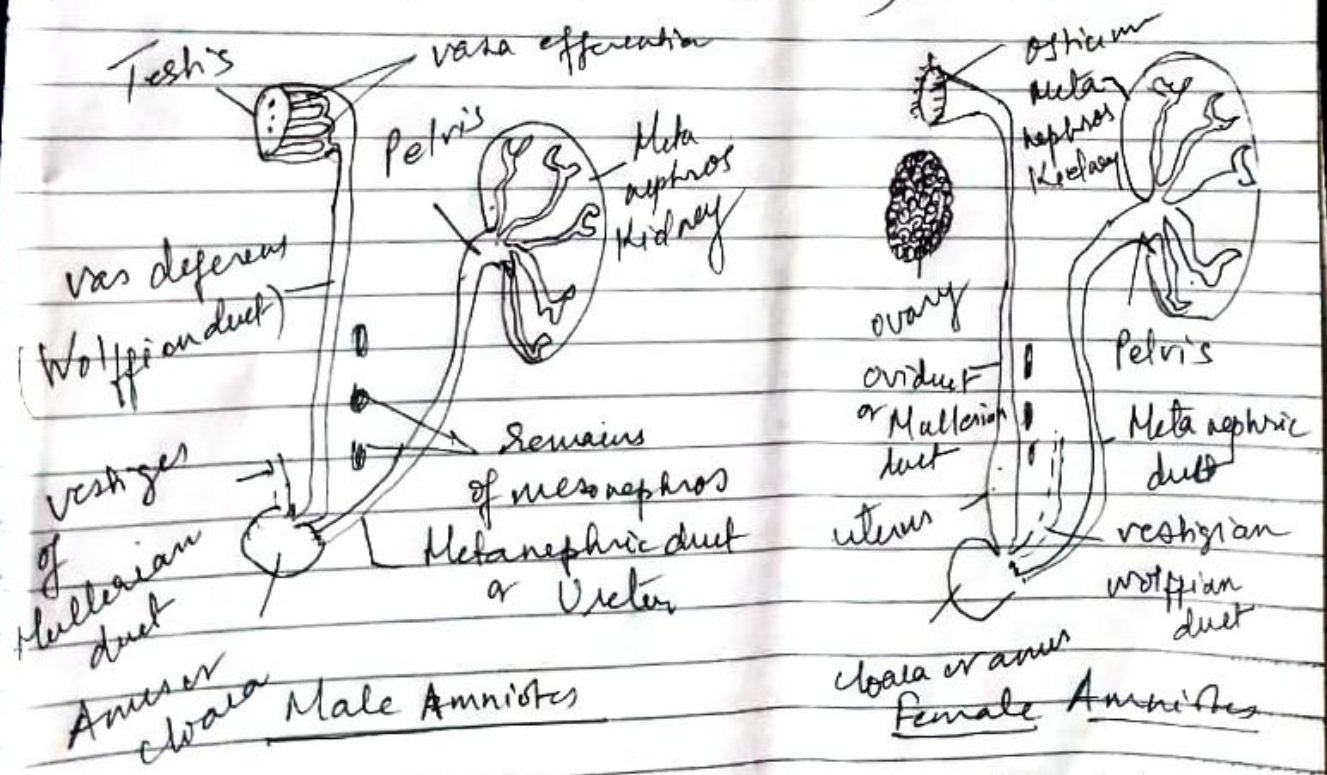 Testis
vasa efferentia
Pelvis
Meta
nephros
Kidney
vas deferens
(Wolffian duct)
remains
of mesonephros
vestiges
of
Mullerian
duct
Metanephric duct
or Ureter
Anus or
cloaca
Male Amniotes
Ostium
Meta
nephros
Kidney
ovary
oviduct
or Mullerian
duct
Pelvis
Meta nephric
duct
uterus
vestigian
wolffian
duct
cloaca or anus
Female Amniotes